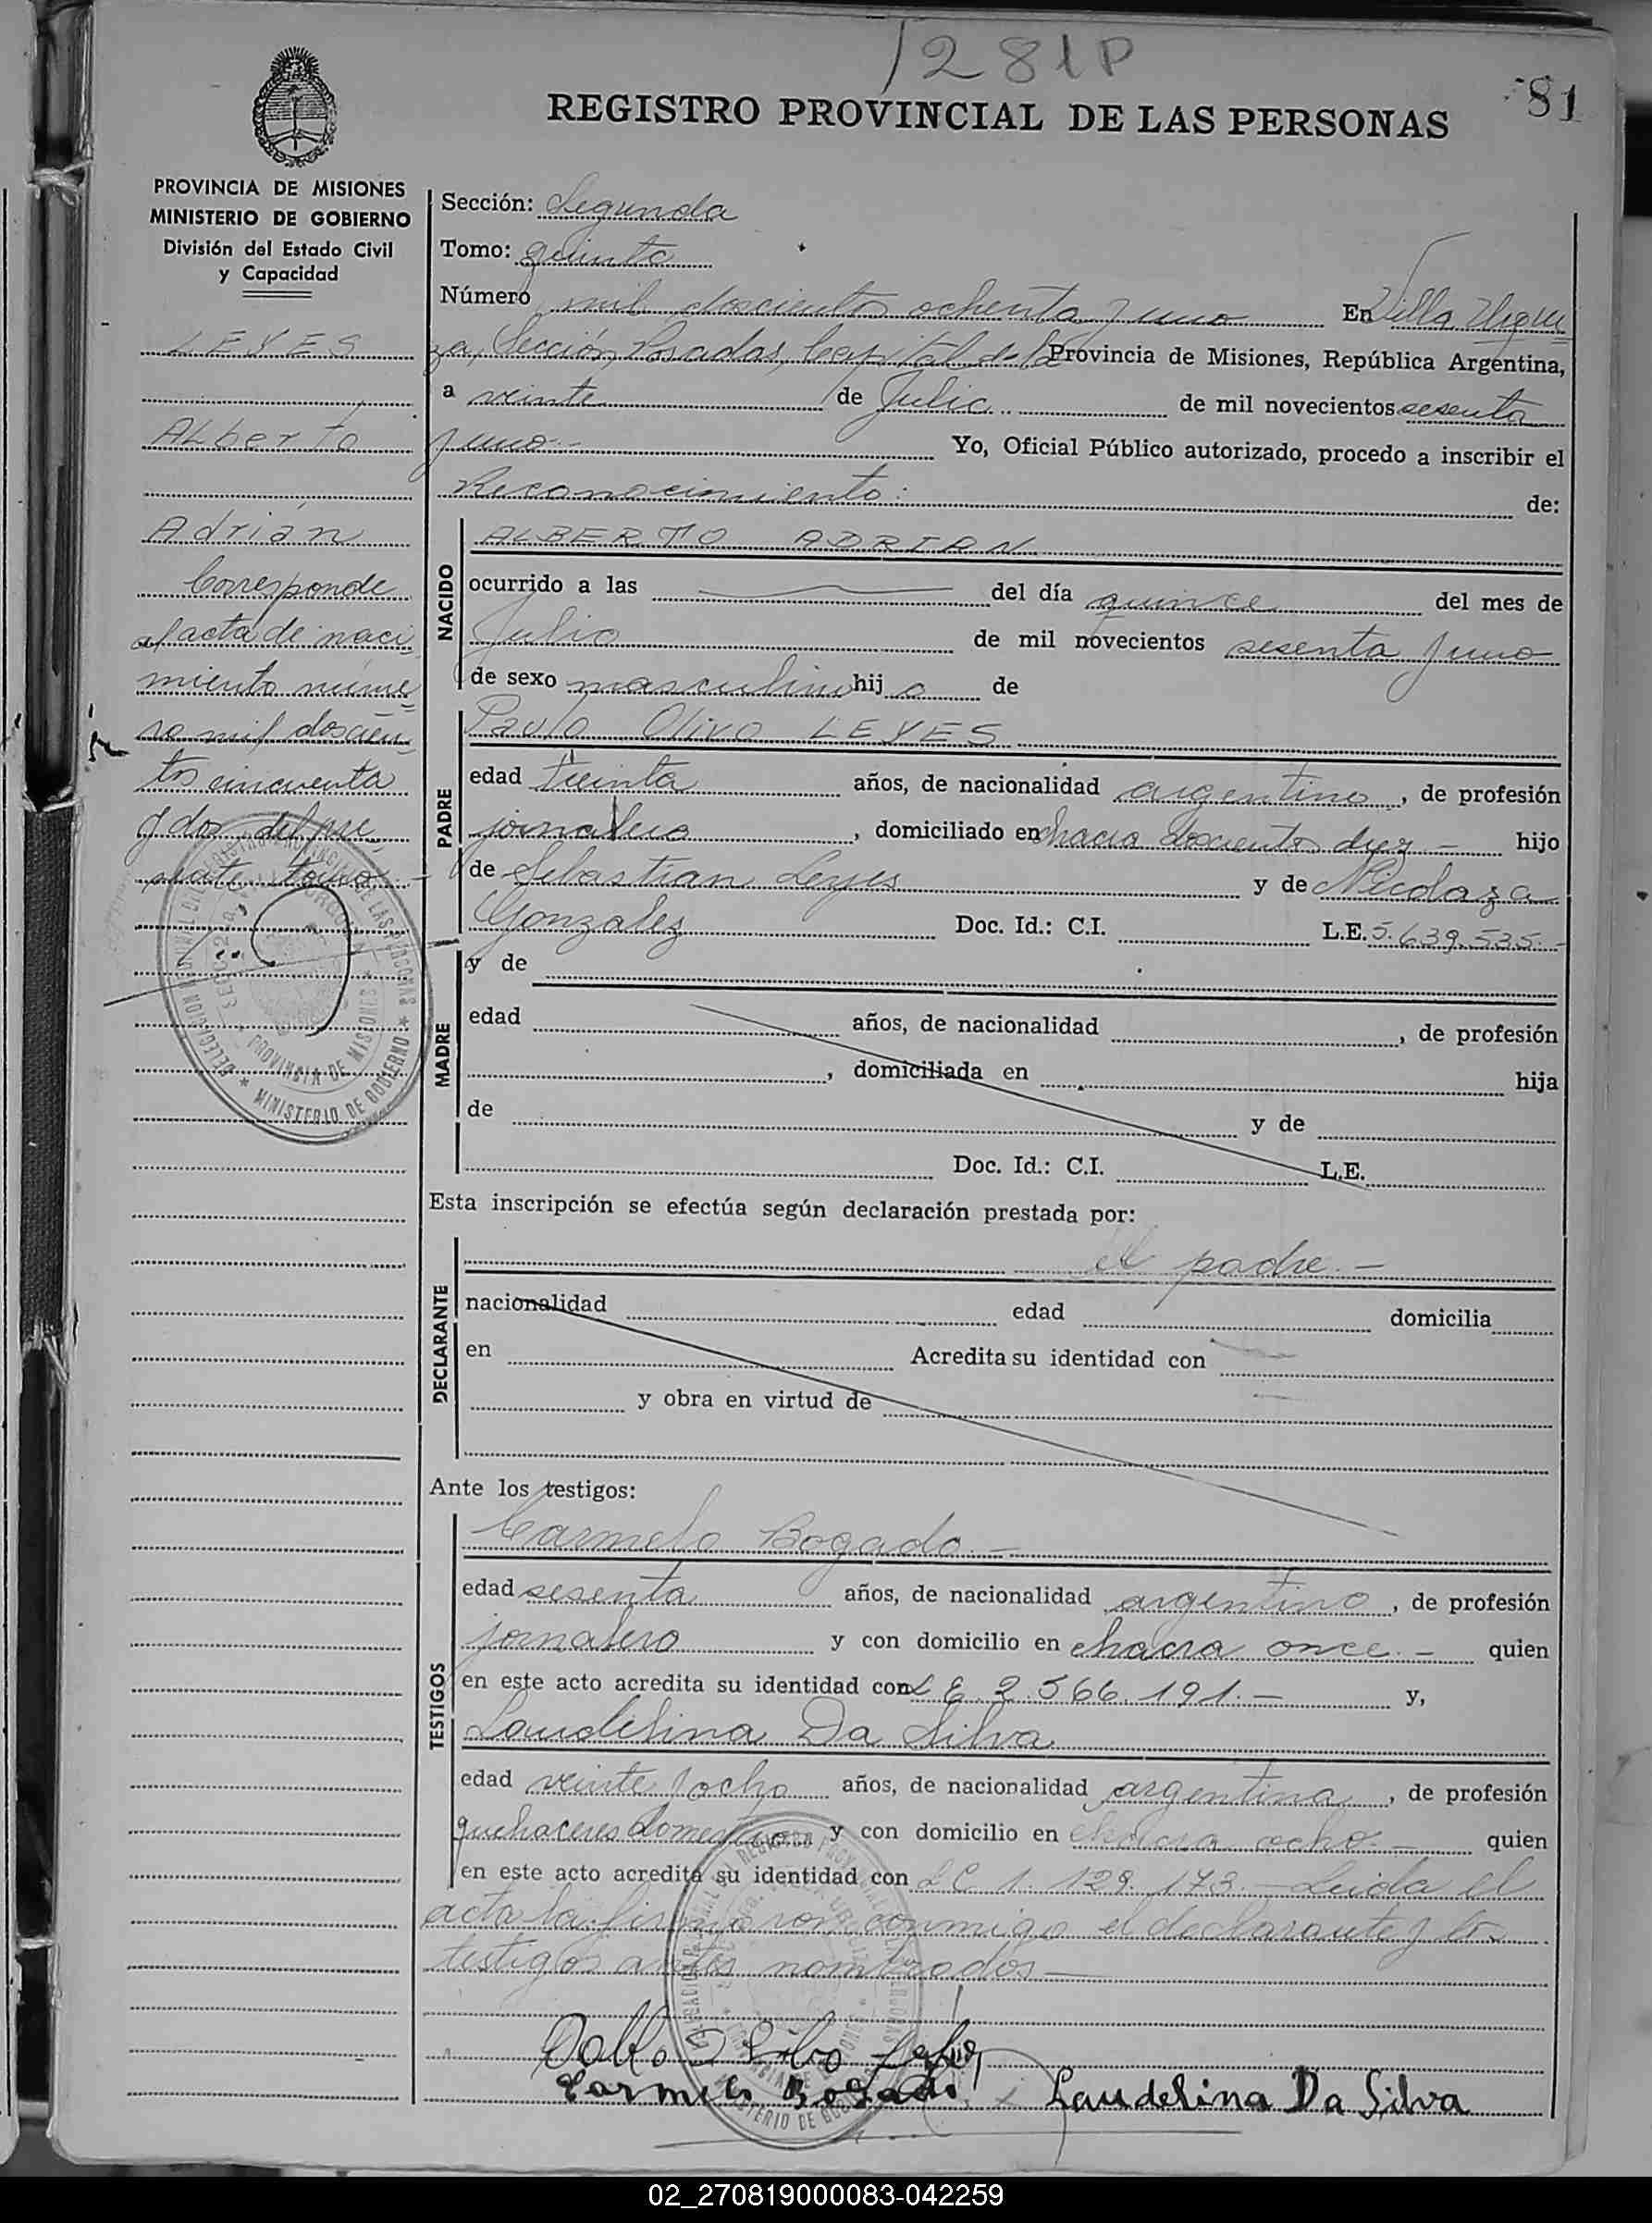 1281P
81
REGISTRO PROVINCIAL DE LAS PERSONAS
PROVINCIA DE MISIONES
MINISTERIO DE GOBIERNO
División del Estado Civil
y Capacidad
LEYES
Alberto
Adrián
Corresponde
al acta de naci
miento núme
ro mil doscien
tos cincuenta
y dos del pre
sente tomo
Sección: Segunda
Tomo: quinto
Número mil doscientos ochenta y uno En Villa Urqui
za, Sección Posadas, Capital de la Provincia de Misiones, República Argentina,
a veinte de Julio de mil novecientos sesenta
y uno Yo, Oficial Público autorizado, procedo a inscribir el
Reconocimiento: de:
NACIDO
ALBERTO ADRIAN
ocurrido a las del día quince del mes de
Julio de mil novecientos sesenta y uno
de sexo masculino hij o de
PADRE
Paulo Olivo LEYES
edad treinta años, de nacionalidad argentino, de profesión
jornalero, domiciliado en chacra doscientos diez - hijo
de Sebastian Leyes y de Nicolaza
Gonzalez Doc. Id.: C.I. L.E. 5.639.535.-
MADRE
y de
edad años, de nacionalidad , de profesión
, domiciliada en hija
de y de
Doc. Id.: C.I. L.E.
Esta inscripción se efectúa según declaración prestada por:
DECLARANTE
el padre.-
nacionalidad edad domicilia
en Acredita su identidad con
y obra en virtud de
Ante los testigos:
TESTIGOS
Carmelo Bogado.-
edad sesenta años, de nacionalidad argentino, de profesión
jornalero y con domicilio en chacra once.- quien
en este acto acredita su identidad con L E. 2.566.191.- y,
Laudelina Da Silva
edad veinte y ocho años, de nacionalidad argentina, de profesión
quehaceres domesticos y con domicilio en chacra ocho.- quien
en este acto acredita su identidad con L C 1.129.173.- Leida el
acta la firmaron conmigo el declarante y los
testigos antes nombrados-
Carmelo Bogado Laudelina Da Silva
MINISTERIO DE GOBIERNO
PROVINCIA DE MISIONES
02_270819000083-042259